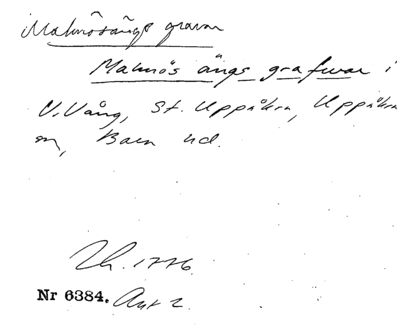 Malmösängs gravar
Malmös ängs grafwar i
V. Vång, St. Uppåkra, Uppåkra
sn, Bara hd.
1776.
Nr 6384.